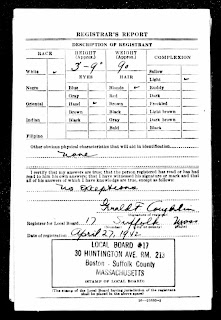 REGISTRAR'S REPORT
DESCRIPTION OF REGISTRANT
RACE HEIGHT (Approx.) WEIGHT (Approx.) COMPLEXION
5'-9" 90
White EYES HAIR Sallow
Light
Negro Blue Blonde Ruddy
Gray Red Dark
Oriental Hazel Brown Freckled
Brown Black Light brown
Indian Black Gray Dark brown
Bald Black
Filipino
Other obvious physical characteristics that will aid in identification
None
I certify that my answers are true; that the person registered has read or has had read to him his own answers; that I have witnessed his signature or mark and that all of his answers of which I have knowledge are true, except as follows:
No Exceptions
Gerald F. Coughlin
Registrar for Local Board 17 Suffolk Mass
Date of registration April 27, 1942
LOCAL BOARD #17
30 HUNTINGTON AVE. RM. 213
Boston - Suffolk County
MASSACHUSETTS
(STAMP OF LOCAL BOARD)
(The stamp of the Local Board having jurisdiction of the registrant shall be placed in the above space)